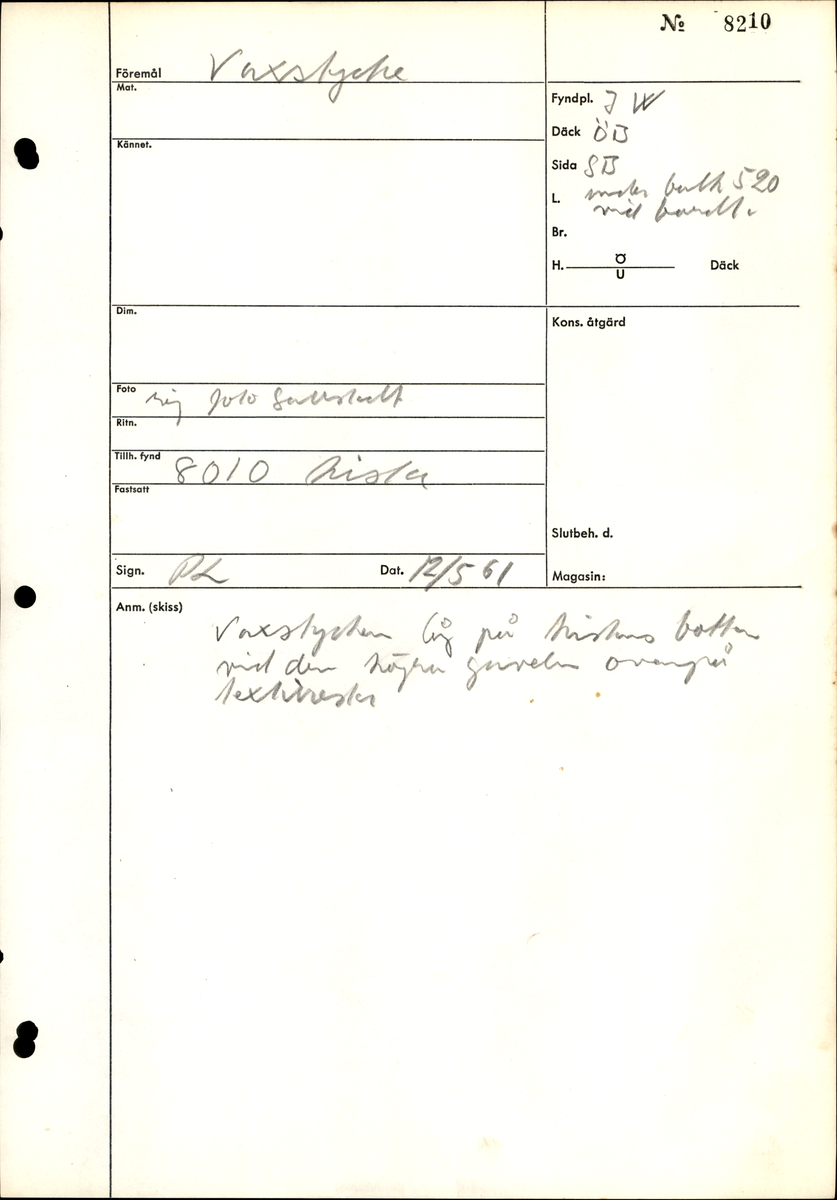 No 8210
Föremål Vaxstycke
Mat.
Kännet.
Fyndpl. J W
Däck ÖB
Sida SB
L. under balk 520
vid bordl.
Br.
H. Ö U Däck
Dim.
Kons. åtgärd
Foto foto
Ritn.
Tillh. fynd 8010 kista
Fastsatt
Slutbeh. d.
Sign. PL Dat. 12/5 61
Magasin:
Anm. (skiss)
Vaxstycken låg på kistans botten
vid den högra gaveln ovanpå
textilrester